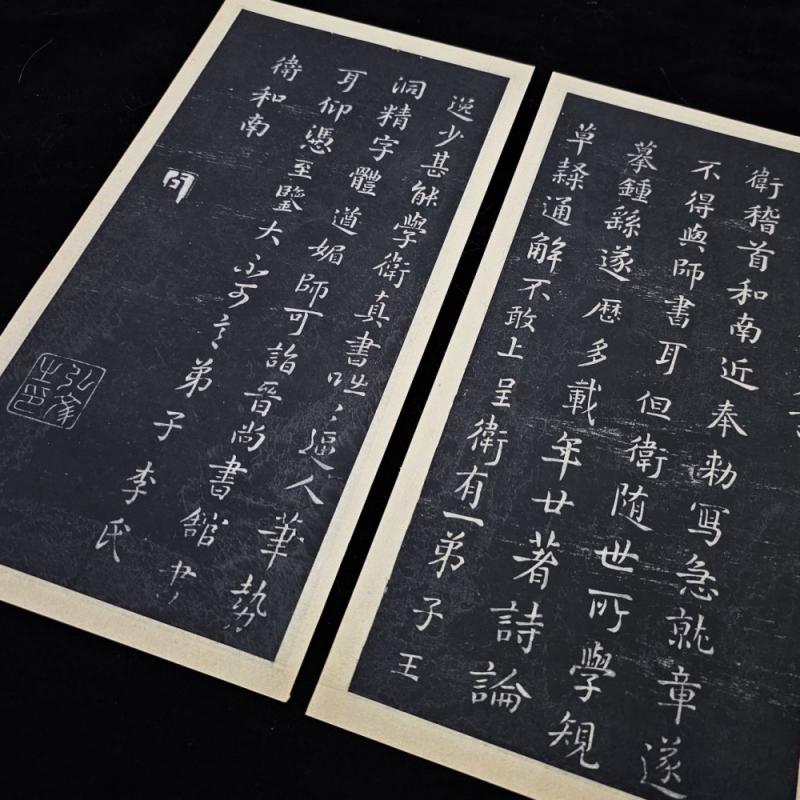 衛稽首和南近奉勅寫急就章遂
不得與師書耳但衛随世所學規
摹鍾繇遂歷多載年廿著詩論
草隸通解不敢上呈衛有一弟子王
逸少甚能學衛真書咄〻逼人筆勢
洞精字體遒媚師可詣晉尚書館書
耳仰憑至鑒大不可言弟子李氏
衛和南